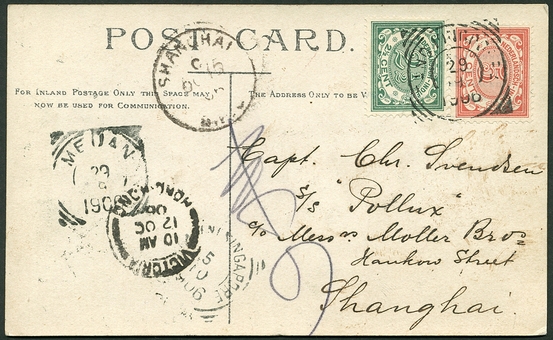 POST CARD.
FOR INLAND POSTAGE ONLY THIS SPACE MAY
NOW BE USED FOR COMMUNICATION.
THE ADDRESS ONLY TO BE
SHANGHAI
2½ CENT
MEDAN
29
190
HONG KONG
VICTORIA
10 AM
12 OC
06
SINGAPORE
29
Capt. Chr. Svendsen
S/S "Pollux"
c/o Messrs Moller Bros
Hankow Street
Shanghai.